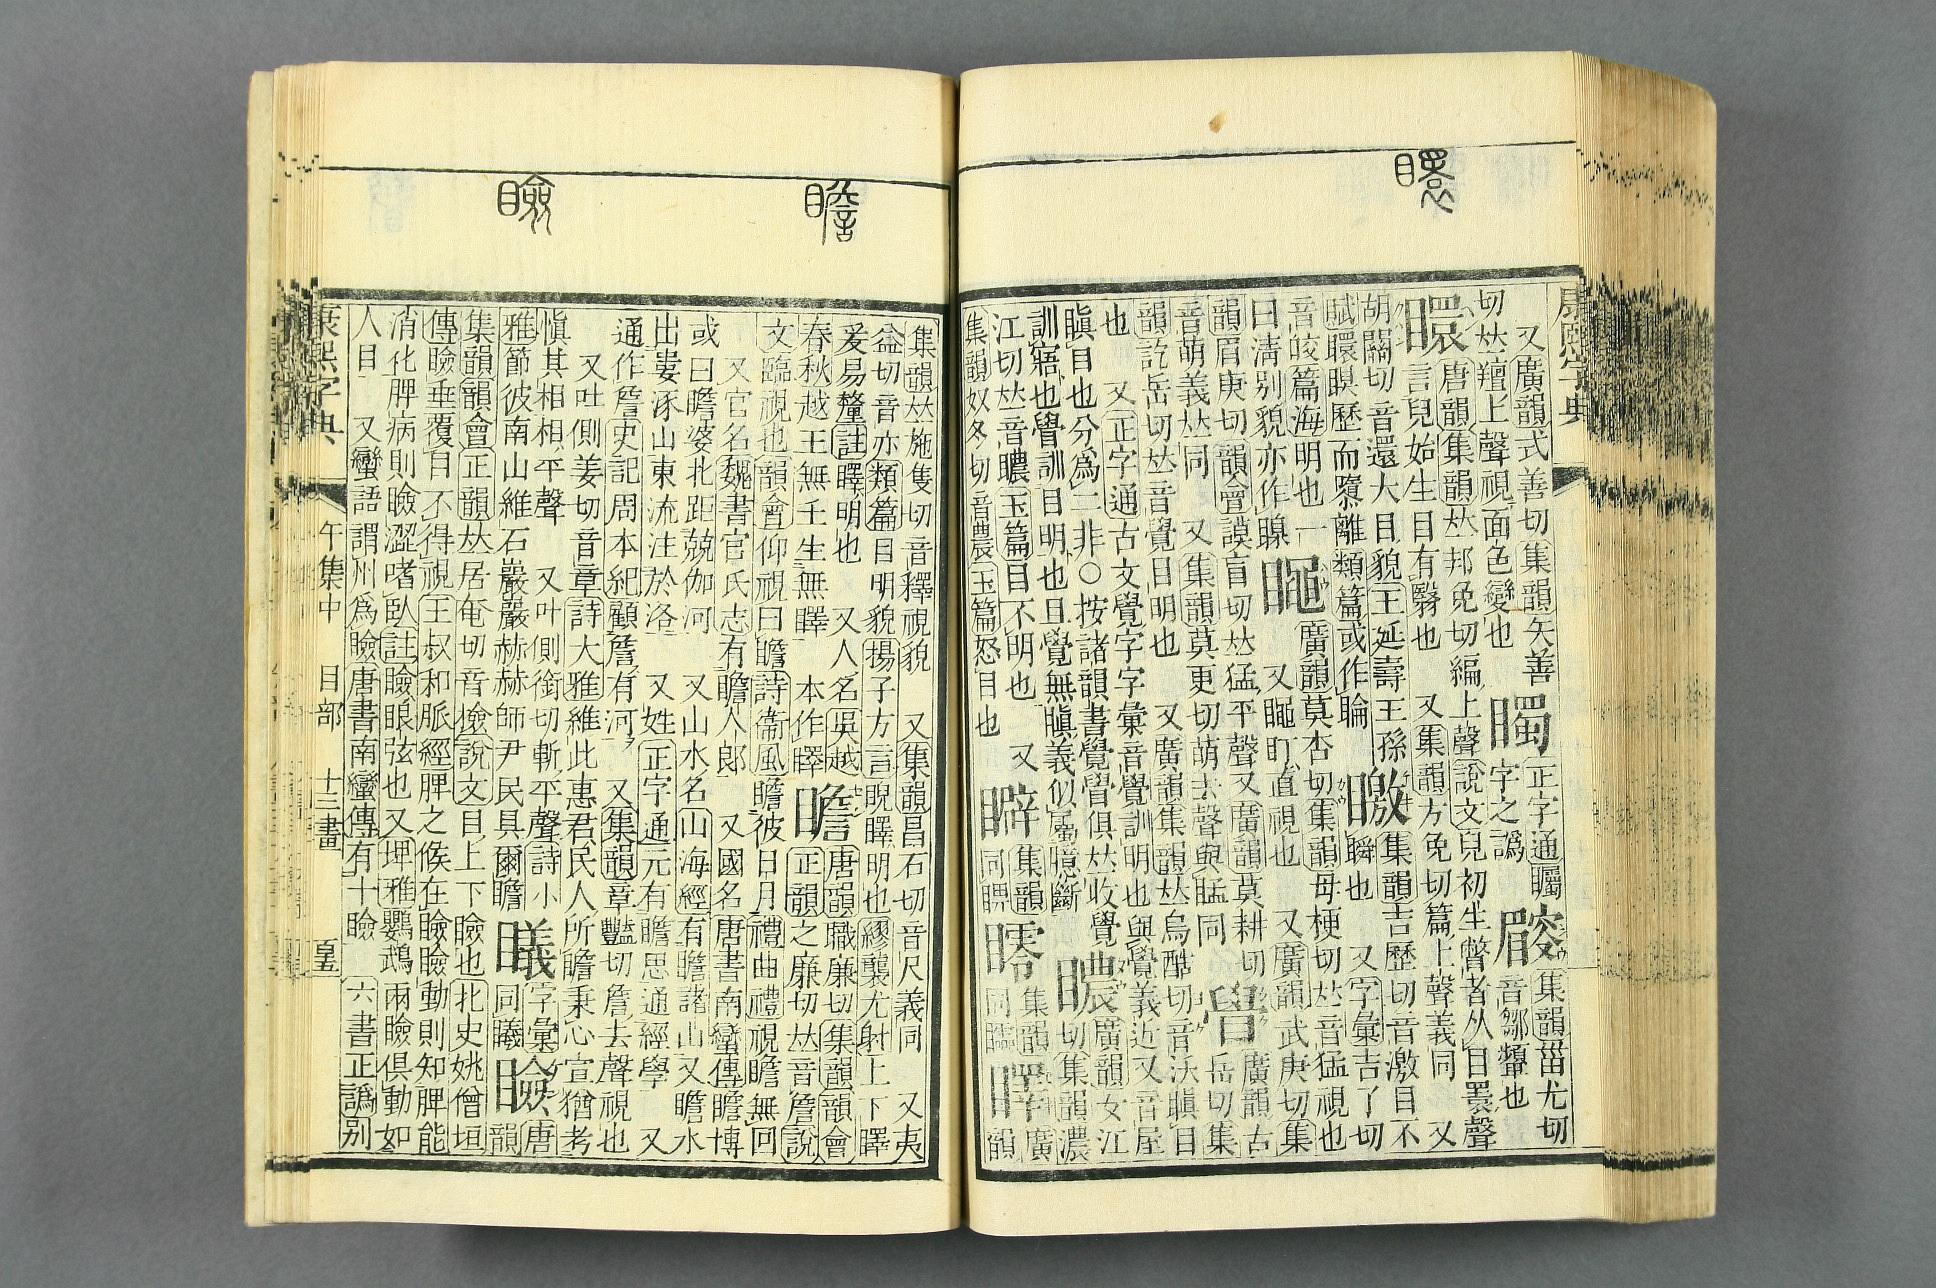 瞏
康熙字典
又廣韻式善切集韻矢善
切𠀤羶上聲視面色變也
矚
正字通矚
字之譌
集韻甾尤切
音鄒矀也
唐韻集韻𠀤邦免切編上聲說文兒初生瞥者从目瞏聲
言兒始生目有翳也 又集韻方免切篇上聲義同 又
胡關切音還大目貌王延壽王孫
賦睘瞑歷而隳離類篇或作睔
集韻吉歷切音激目不
瞬也 又字彙吉了切
音皎篇海明也一
曰淸別貌亦作瞭
廣韻莫杏切集韻母梗切𠀤音猛視也
又䁅盯直視也 又廣韻武庚切集
韻眉庚切韻會謨盲切𠀤猛平聲又廣韻莫耕切
音萌義𠀤同 又集韻莫更切萌去聲與猛同
廣韻古
岳切集
韻訖岳切𠀤音覺目明也 又廣韻集韻𠀤烏酷切音沃瞋目
也 又正字通古文覺字字彙音覺訓明也與覺義近又音屋
瞋目也分爲二非○按諸韻書覺䁷俱𠀤收覺
訓寤也䁷訓目明也且覺無瞋義似屬臆斷
廣韻女江
切集韻濃
江切𠀤音聽玉篇目不明也 又
集韻奴冬切音農玉篇怒目也
集韻
同
集韻
同
廣
韻
瞻
瞼
集韻𠀤施隻切音釋視貌 又集韻昌石切音尺義同 又夷
益切音亦類篇目明貌揚子方言睨睪明也繆襲尤射上下睪
爰易釐註睪明也 又人名吳越
春秋越王無壬生無睪 本作睪
瞻
唐韻職廉切集韻韻會
正韻之廉切𠀤音詹說
文臨視也韻會仰視曰瞻詩衞風瞻彼日月禮曲禮視瞻無回
又官名魏書官氏志有瞻人郎 又國名唐書南蠻傳瞻博
或曰瞻婆北距兢伽河 又山水名山海經有瞻諸山又瞻水
出婁涿山東流注於洛 又姓正字通元有瞻思通經學 又
通作詹史記周本紀顧詹有河 又集韻章豔切詹去聲視也
又叶側姜切音章詩大雅維此惠君民人所瞻秉心宣猶考
愼其相相平聲 又叶側銜切斬平聲詩小
雅節彼南山維石巖巖赫赫師尹民具爾瞻
字彙
同曦
瞼
唐
韻
集韻韻會正韻𠀤居奄切音撿說文目上下瞼也北史姚僧垣
傳瞼垂覆目不得視王叔和脈經脾之候在瞼瞼動則知脾能
消化脾病則瞼澀嗜臥註瞼眼弦也又埤雅鸚鵡兩瞼俱動如
人目 又蠻語謂州爲瞼唐書南蠻傳有十瞼 六書正譌別
康熙字典 午集中 目部 十三畫